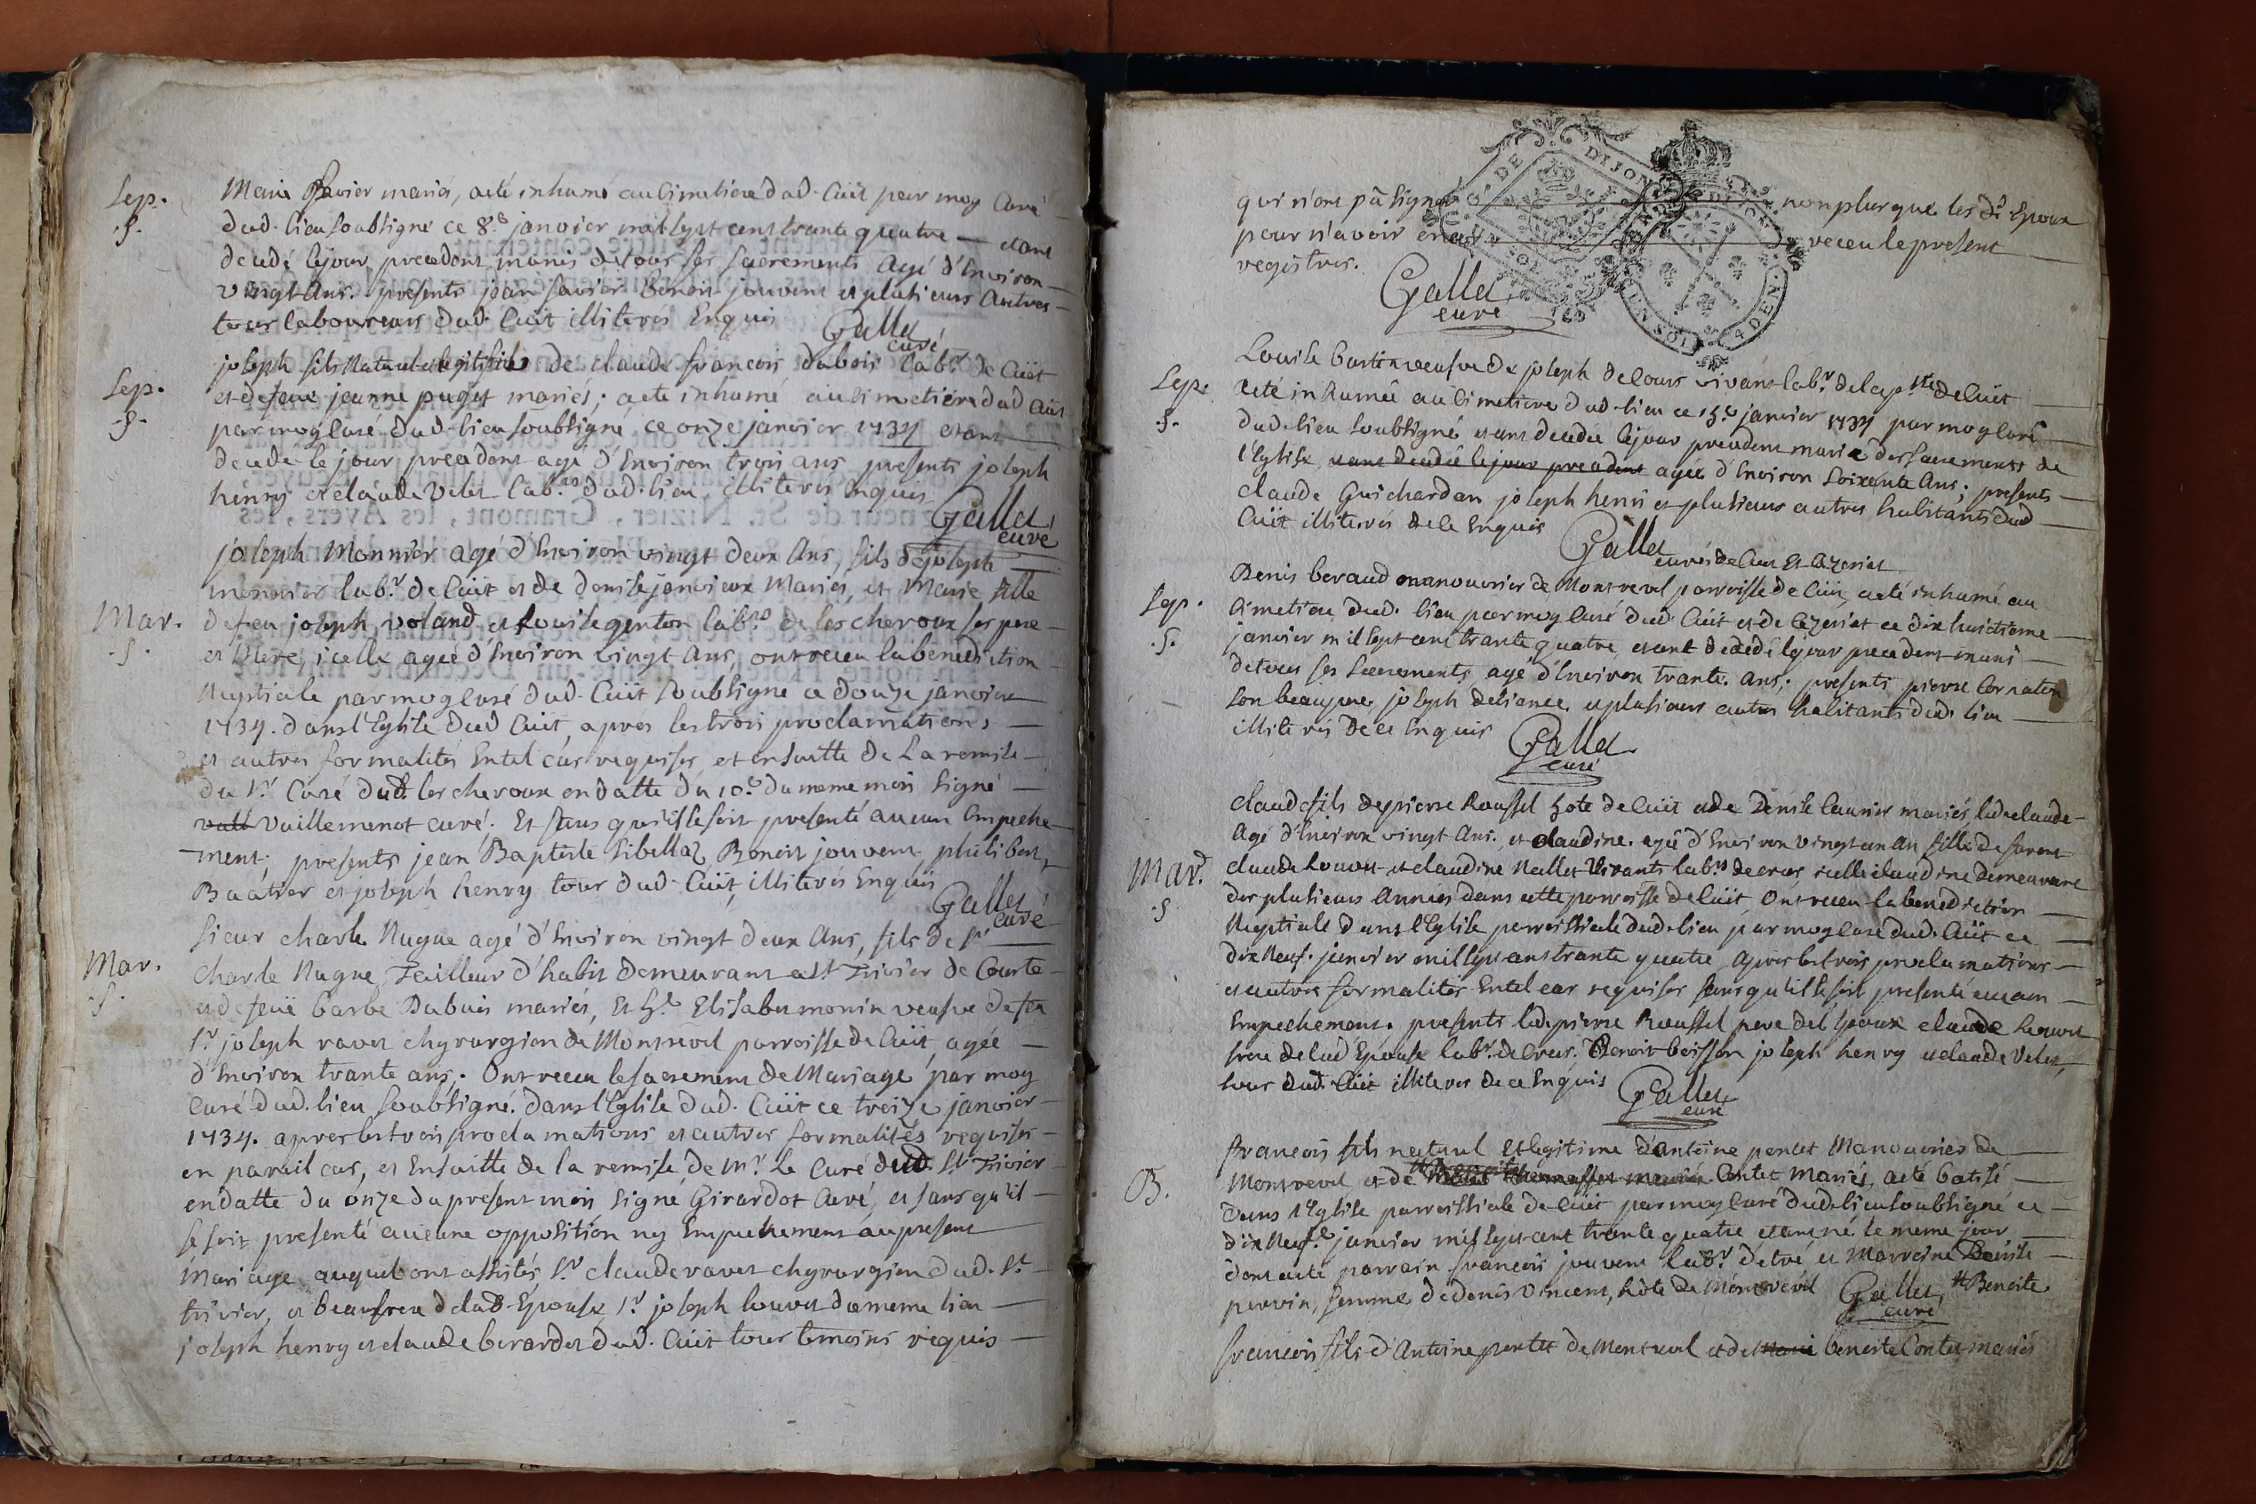 Sep.
.S.
Marie mariés, a eté inhumé au Cimetiere dud. Cüit par moy Curé
dud. lieu soubsigné ce 8.e janvier mil sept cens trante quatre — etant
decedé le jour precedent munis de tous ses sacrements agé d'Environ
vingt ans. presents jean Benoit jouvent et plusieurs autres
tous laboureurs dud. Cüit illiterés Enquis
Gallet
curé
Sep.
.S.
joseph fils Naturel et legitime de claude francois dubois lab.r de Cüit
et defeue jeanne puget mariés; a eté inhumé au cimetiére dud Cüit
par moy Curé dud. lieu soubsigné, ce onze janvier 1734 etant
decedé le jour precedent agé d'Environ trois ans presents joseph
henry et claude Velet lab.rs dud. lieu, illiterés Enquis
Gallet
curé
Mar.
.S.
joseph Monnier agé d'Environ vingt deux Ans, fils de joseph
monnier lab.r de Cüit et de denise janvieux Mariés, et Marie fille
defeu joseph voland et Louise genton lab.rs de lescheroux ses pere
et Mere, icelle ageé d'Environ vingt Ans, ont receu la benediction
Nuptiale par moy Curé dud. Cüit soubsigné ce douze janvier
1734. dans l'Eglise dud Cüit, apres les trois proclamations
et autres formalités Entel cas requises, et ensuitte de La remise
du S.r Curé dud. lescheroux en datte du 10.e du meme mois signé
vull Vuillemenot curé. Et sans qu'il se soit presenté aucun Empeche
ment; presents jean Baptiste Sibellas Benoit jouvent, philibert
Baatier et joseph henry tous dud. Cüit, illiterés Enquis
Gallet
curé
Mar.
.S.
sieur charle Nugue agé d'Environ vingt deux Ans, fils de S.r
Charle Nugue Tailleur d'habit demeurant a St Trivier de Courte
et defeüe barbe Dubuis mariés, Et h.e Elisabet monin veufve defeu
S.r joseph ravet chyrurgien de Montrevel parroisse de Cüit, agée
d'Environ trante ans; Ont receu le sacrement de Mariage par moy
Curé dud. lieu soubsigné. dans l'Eglise dud. Cüit ce treize janvier
1734. apres les trois proclamations et autres formalités requises
en pareil cas, et Ensuitte de la remise de M.r le Curé dud. St Trivier
endatte du onze du present mois signé Girardot Curé, et sans qu'il
se soit presenté aucune opposition ny Empechement au present
Mariage auquel ont assistés S.r claude ravet chyrurgien dud. St
trivier, et beaufrere de lad Epouse, S.r joseph louvet du meme lieu
joseph henry et claude berardet dud. Cüit tous temoins requis
DE DIJON
qui n'ont pâ signé non plus que les d.s Epoux
pour n'avoir receu le present
registres.
Gallet
curé
Sep.
.S.
Louise bartin veufve de joseph delours vivant lab.r dela p.sse de Cüit
a eté inhumée au Cimetiere dud. lieu ce 15.e janvier 1734 par moy Curé
dud. lieu soubsigné etant decedée le jour precedent munie des sacrements de
l'Eglise etant decedée le jour precedent agée d'Environ soixante Ans; presents
claude Guichardan joseph henri et plusieurs autres habitants dud
Cüit illiterés dece Enquis
Gallet
curé de Cüit et Cezeriat
Sep.
.S.
Denis beraud manouvrier de Montrevel parroisse de Cüit, a eté inhumé au
Cimetiere dud. lieu par moy Curé dud. Cüit et de Cezeriat ce dix huictieme
janvier mil sept cens trante quatre, etant decedé le jour precedent muni
de tous ses sacrements, agé d'Environ trante ans; presents pierre Cornaton
son beaupere, joseph deliance et plusieurs autres habitants dud. lieu
illiterés de ce Enquis
Gallet
curé
Mar.
.S
claude fils de pierre Roussel hote de Cüit et de Denise Cannier mariés, led claude
Agé d'Environ vingt Ans. et claudine ageé d'Environ vingt un An fille de furent
claude Louvet et claudine Nallet vivants lab.rs de cras, icelle claudine demeurante
des plusieurs Années dans cette parroisse de Cüit, Ont receu la benediction
Nuptiale dans l'Eglise parroissiale dud. lieu par moy Curé dud. Cüit ce
dix Neuf. janvier mil sept cens trante quatre, apres les trois proclamations
et autres formalités Entel cas requises sans qu'il se soit presenté aucun
Empechement. presents led. pierre Roussel pere del Epoux claude Louvet
frere de lad Epouse lab.r de Cras. Benoit boisson joseph henry et claude Velet,
tous dud. Cüit illiterés de ce Enquis
Gallet
curé
B.
francois fils naturel Et legitime d'Antoine pontet Manouvrier de
Montrevel et de Contet Mariés, a eté batisé
dans l'Eglise parroissiale de Cüit par moy Curé dud. lieu soubsigné ce
dix Neuf.e janvier mil sept cent trante quatre etant né le meme jour
dont a eté parrain francois jouvent lab.r d'etré et Marraine Denise
perrin, femme de denis Vincent, hôte de Montrevel
Gallet
curé
# Benoite
francois fils d'Antoine pontet de Montrevel et de Marie benoite Contet mariés